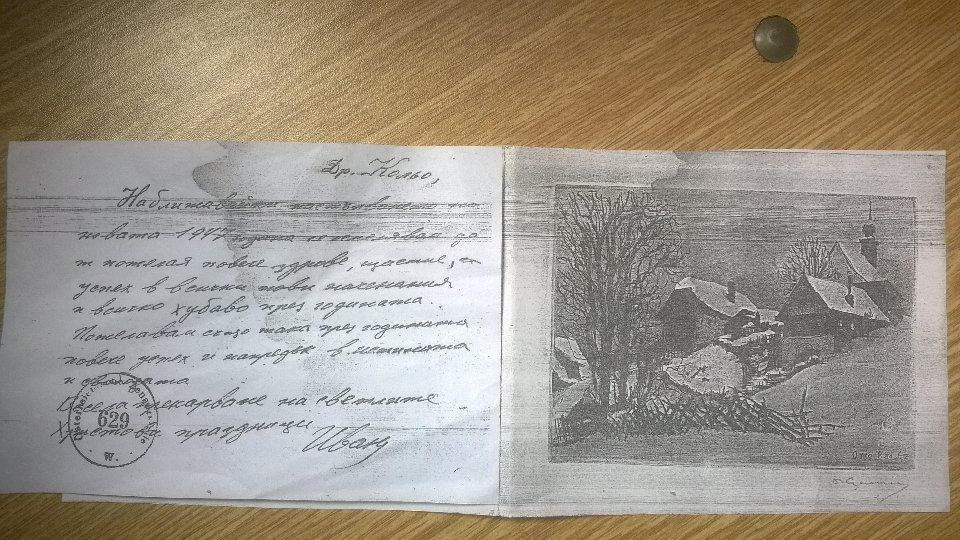 Др. Кольо,
Наближавайки настъпването на
новата 1947 година пожелавам да
ти пожелая повече здраве, щастие,
успех в всички нови начинания
и всичко хубаво през годината.
Пожелавам също така през годината
повече успех и напредък в
и
Весело прекарване на светлите
Христови празници
Иван
629
W.